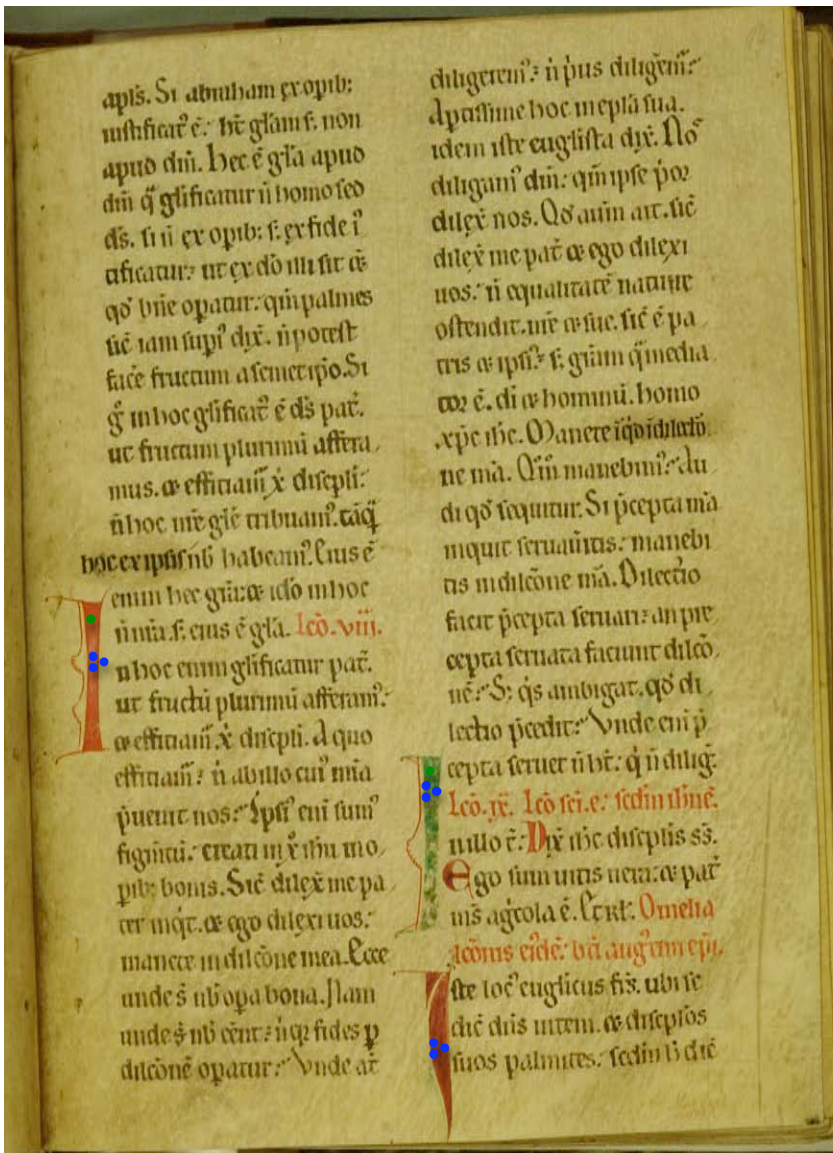 apl's. Si abraham ex opib:
iustificat' ē. ht' gl'am s. non
apud dm̄. hec ē gl'a apud
dm̄ q̄ gl'ificatur n̄ homo sed
ds̄. si n̄ ex opib: s. ex fide i'
tificatur: ut ex dō illi sit &
qd' bn̄e opatur: qm̄ palmes
sic̄ iam sup' dix̄. n̄ potest
face fructum a semetip̄o. Si
g̊ in hoc gl'ificat' ē ds̄ pat'.
ut fructum plurimū affera
mus. & efficiam' x̄ discipl'i:
n̄ hoc nr̄e gl'e tribuam'. tāq̄
hoc ex ipsis nb̄ habeam'. Cuius ē
enim hec gr̄a: & idō in hoc
n̄ nr̄a. s. eius ē gl'a. lc̄o. viii.
In hoc enim gl'ificatur pat'.
ut fructū plurimū afferam':
& efficiam'. x̄ discipl'i. A quo
efficiam': n̄ ab illo cui' mīa
p̄uenit nos: Ipsi' eni sum'
figm̄tū. creati in x̄ ihū in o
pib: bonis. Sic̄ dilex̄ me pa
ter inqt'. & ego dilexi uos:
manete in dilc̄one mea. Ecce
unde s̄ nb̄ opa bona. Nam
unde s̄ nb̄ eēnt: n̄ q: fides p
dilc̄onē opatur: Vnde at'
diligerem': n̄ p'us diligem':
Aptissime hoc in epl'a sua.
idem iste euglista dix̄. No'
diligam' dm̄: qm̄ ipse p'or
dilex̄ nos. Qd' autm̄ ait. sic̄
dilex̄ me pat' & ego dilexi
uos: n̄ equalitatē nature
ostendit. nr̄e & sue. sic̄ ē pa
tris & ipsi': s. gr̄am q̄ media
tor ē. di & hominū. homo
xp̄c ih̄c. Manete iq'd i dilectō
ne mā. Qm̄ manebim': Au
di qd' sequitur. Si p̄cepta mā
inquit seruau'itis: manebi
tis in dilc̄one mā. Dilectio
facit p̄cepta seruari: an pre
cepta seruata faciunt dilc̄o
nē: S: q's ambigat. qd' di
lectio p̄cedit: Vnde eni p̄
cepta seruet n̄ ht': q' n̄ diliḡ.
lc̄o. ix. lc̄o sc̄i. e: sedm̄ ioh̄nē.
In illo t̄: Dix̄ ih̄c discipl'is ss̄.
Ego sum uitis uera: & pat'
ms̄ agc̄ola ē. Et rl'. Omelia
lc̄onis ei'dē: bt̄i aug'tini ep̄i.
Iste loc' euglicus fr̄s. ubi se
dic̄ dn̄s uitem. & discipl'os
suos palmites: sedm̄ h̄ dic̄